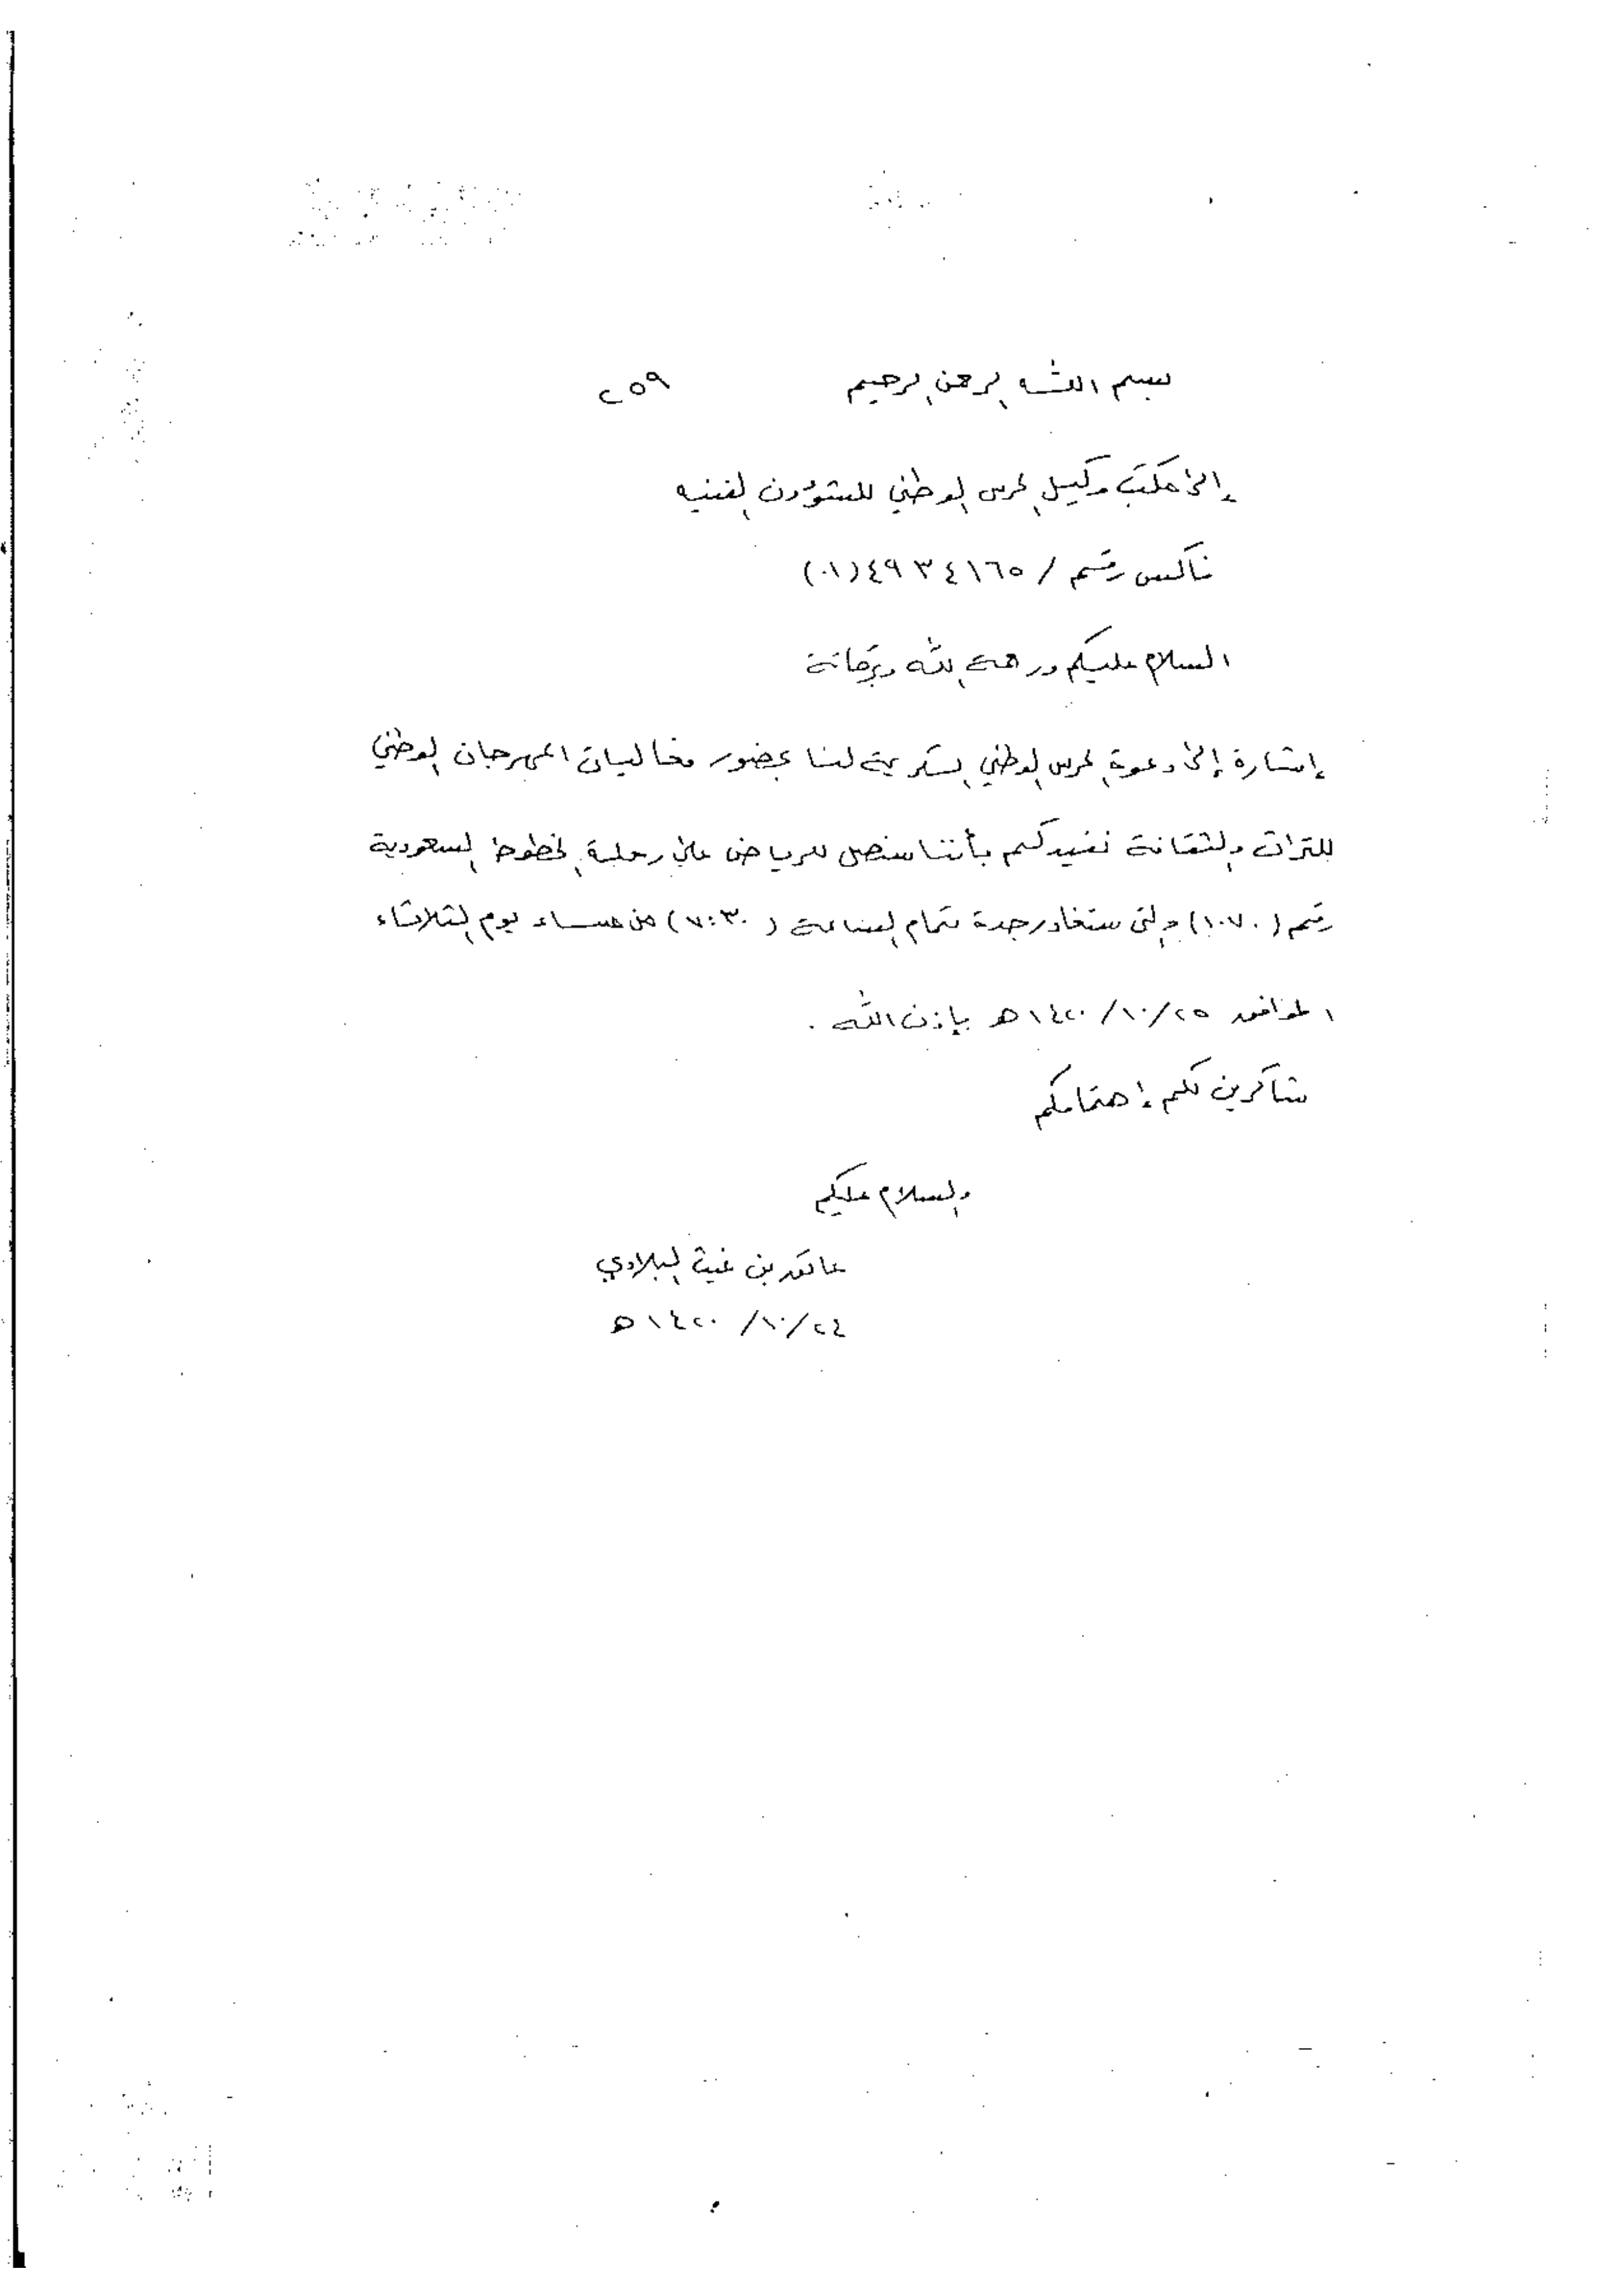 بسم الله الرحمن الرحيم ٢٥٩
إلى مكتب وكيل الحرس الوطني للشؤون الفنيه
فاكس رقم / ٤٩٣٤١٦٥ (٠١)
السلام عليكم ورحمة الله وبركاته
إشارة إلى دعوة الحرس الوطني الكريمة لنا بحضور فعاليات المهرجان الوطني
للتراث والثقافة نفيدكم بأننا سنصل للرياض على رحلة الخطوط السعودية
رقم (١٠٧٠) والتي ستغادر جدة تمام الساعة (٧:٣٠) من مساء يوم الثلاثاء
الموافق ٢٥/١٠/١٤٢٠هـ بإذن الله .
شاكرين لكم إهتمامكم
والسلام عليكم
عاتق بن غيث البلادي
٢٤/١٠/١٤٢٠هـ